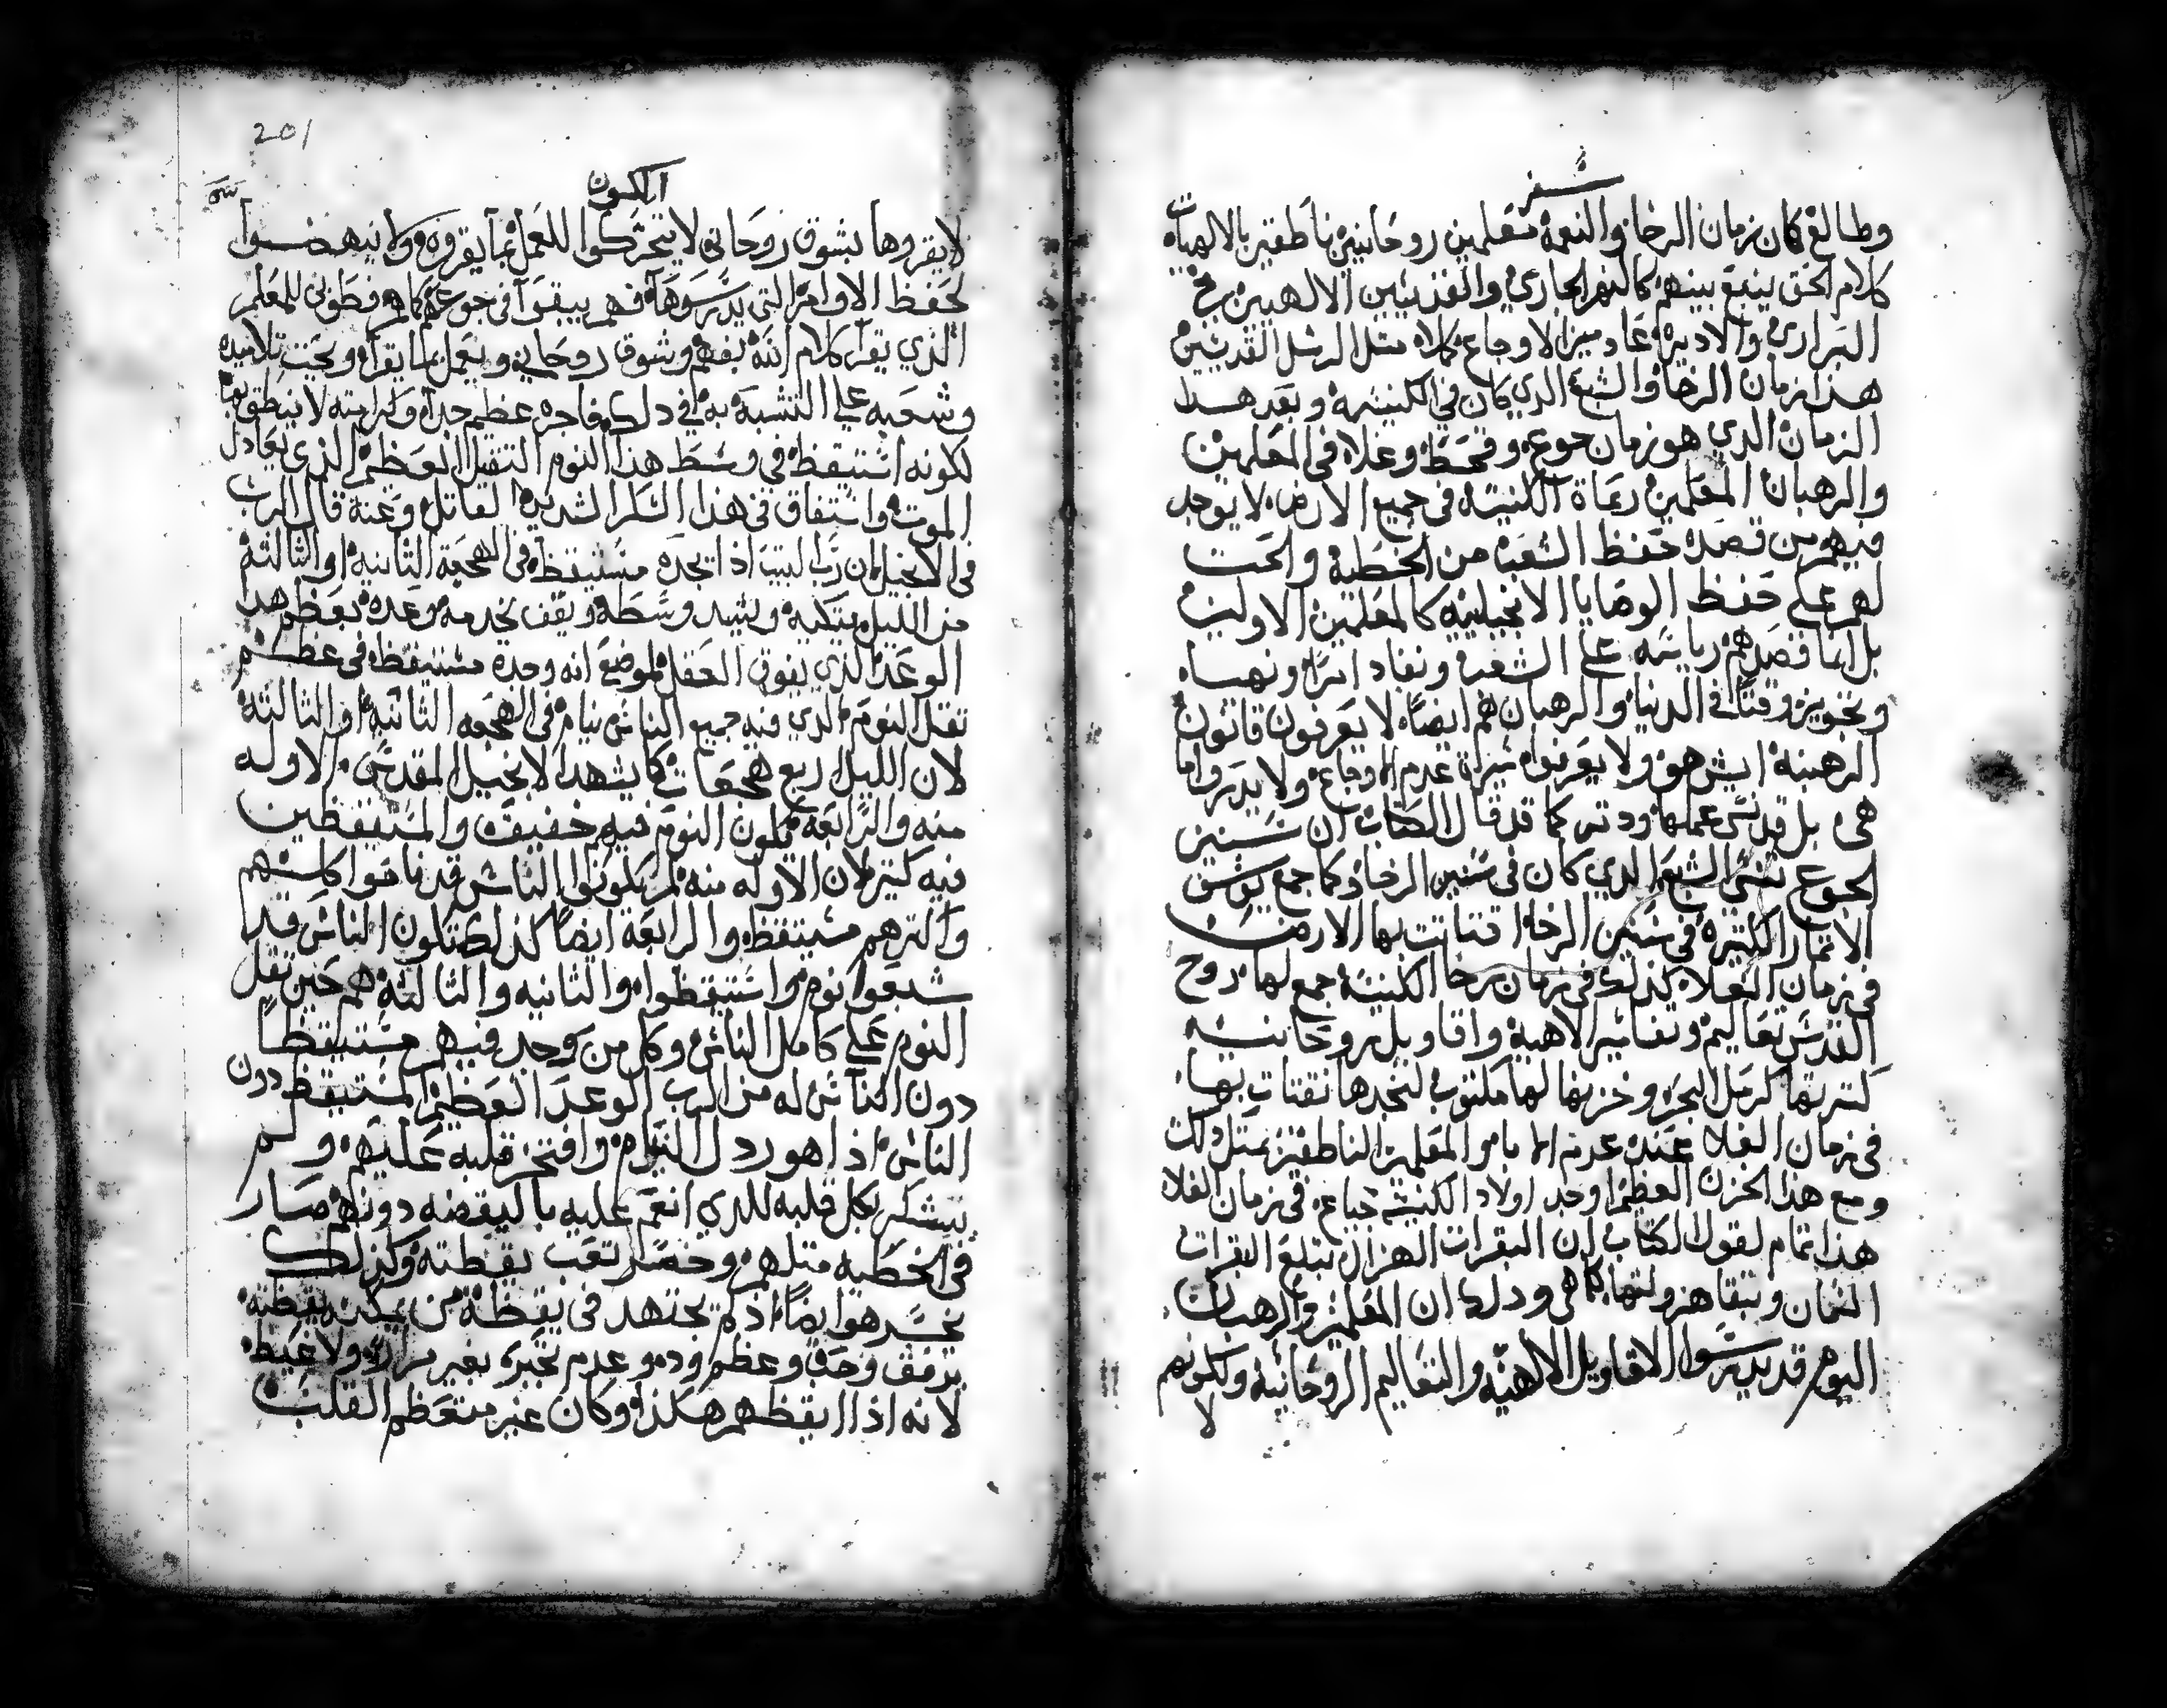 سفر
وطالع كان زمان الرخا والنعمه متعلمين روحانيين ناطقين بالالهيات
كلام الحق ينبع بينهم كالنهر الجاري والقديسين الالهيين في
البراري والاديره عادمين الاوجاع كلاه مثل الرسل القديسين
هدا زمان الرخا والشبع الدي كان في الكنيسه وبعد هدا
الزمان الدي هو زمان جوع وقحط وغلا في المعلمين
والرهبان المعلمين رعاة الكنيسه في جميع الارض لا يوجد
فيهم من قصده حفظ الشعب من الخطيه والحت
لهم على حفظ الوصايا الانجيليه كالمعلمين الاولين
بل انما قصدهم رياسه على الشعب ونفاد امرا ونهيا
وتجويز وقتا في الدنيا والرهبان هم ايضا لا يعرفون قانون
الرهبنه ايش هو ولا يعرفوا سيرة عدم الاوجاع ولا يدروا ما
هي بل قد نسي عملها ودتر كما قد قال الكتاب ان سنين
الجوع تنسي الشبع الدي كان في سنين الرخا وكما جمع يوسف
الاتمار الكتيره في سنين الرخا اقتاتت بها الارض
في زمان الغلا كذلك في زمان رخا الكنيسه جمع لها روح
القدس تعاليم وتفاسير الاهيه واقاويل روحانيه
كترتها كرمل البحر وخزنها لها مكتوبه لتجدها تقتات بها
في زمان الغلا عند عدم الابا والمعلمين الناطقين بمتل دلك
ومع هذا الخزن العظيم اوجد اولاد الكنيسه جياع في زمان الغلا
هذا تمام لقول الكتاب ان البقرات الهزال تبتلع البقرات
السمان وتبقا هزولتها كما هي ودلك ان المعلمين والرهبان
اليوم قد يدرسوا الاقاويل الالهيه والتعاليم الروحانيه ولكونهم
لا
201
الكون
لا يقروها بشوق روحاني لا يتحركوا للعمل بما يقروه ولا ينهضوا
لحفظ الاوامر التي يدرسوها فهم يبقوا في جوعهم كما هم فطوبى للمعلم
الذي يقرا كلام الله بفهم وشوق روحاني ويعمل بما يقراه ويحت تلاميده
وشعبه على التشبه به في دلك فاجره عظيم جدا وكرامته لا ينطق بها
لكونه استيقظ في وسط هذا النوم التقيل العظيم الذي يعادل
الموت واستفاق في هذا السكر الشديد القاتل وعنه قال الرب
في الانجيل ان رب البيت اذا تجده مستيقظ في الهجعه التانيه او التالته
من الليل يتكيه ويشد وسطه ويقف يخدمه وعده بعظم هدا
الوعد الذي يفوق العقل لموضع انه وحده مستيقظ في عظم
تقل النوم الدي فيه جميع الناس نيام في الهجعه التانيه او التالته
لان الليل اربع هجعات كما يشهد الانجيل المقدس الاوله
منه والرابعه يكون النوم فيه خفيف والمستيقظين
فيه كتير لان الاوله منه لم يكونوا الناس قد ناموا كلهم
واكترهم مستيقظ والرابعه ايضا كذلك تكون الناس قد
شبعوا نوم واستيقظوا والتانيه والتالته هم حين تقل
النوم على كامل الناس وكل من وجد فيهم مستيقظا
دون الناس له من الرب الوعد العظيم المستيقظ دون
الناس اذا هو ردل النيام وافتخر قلبه عليهم ولم
يشكر بكل قلبه للدي انعم عليه باليقضه دونهم صار
في الخطيه متلهم وخسار تعب يقظته وكذلك
يخسر هو ايضا اذ لم يجتهد في يقظة من يمكنه يقظته
برفق وحب وعظم ودو وعدم تجبر بغير مراره ولا غيظ
لانه اذا ايقظهم هكذا وكان غير متعظم القلب